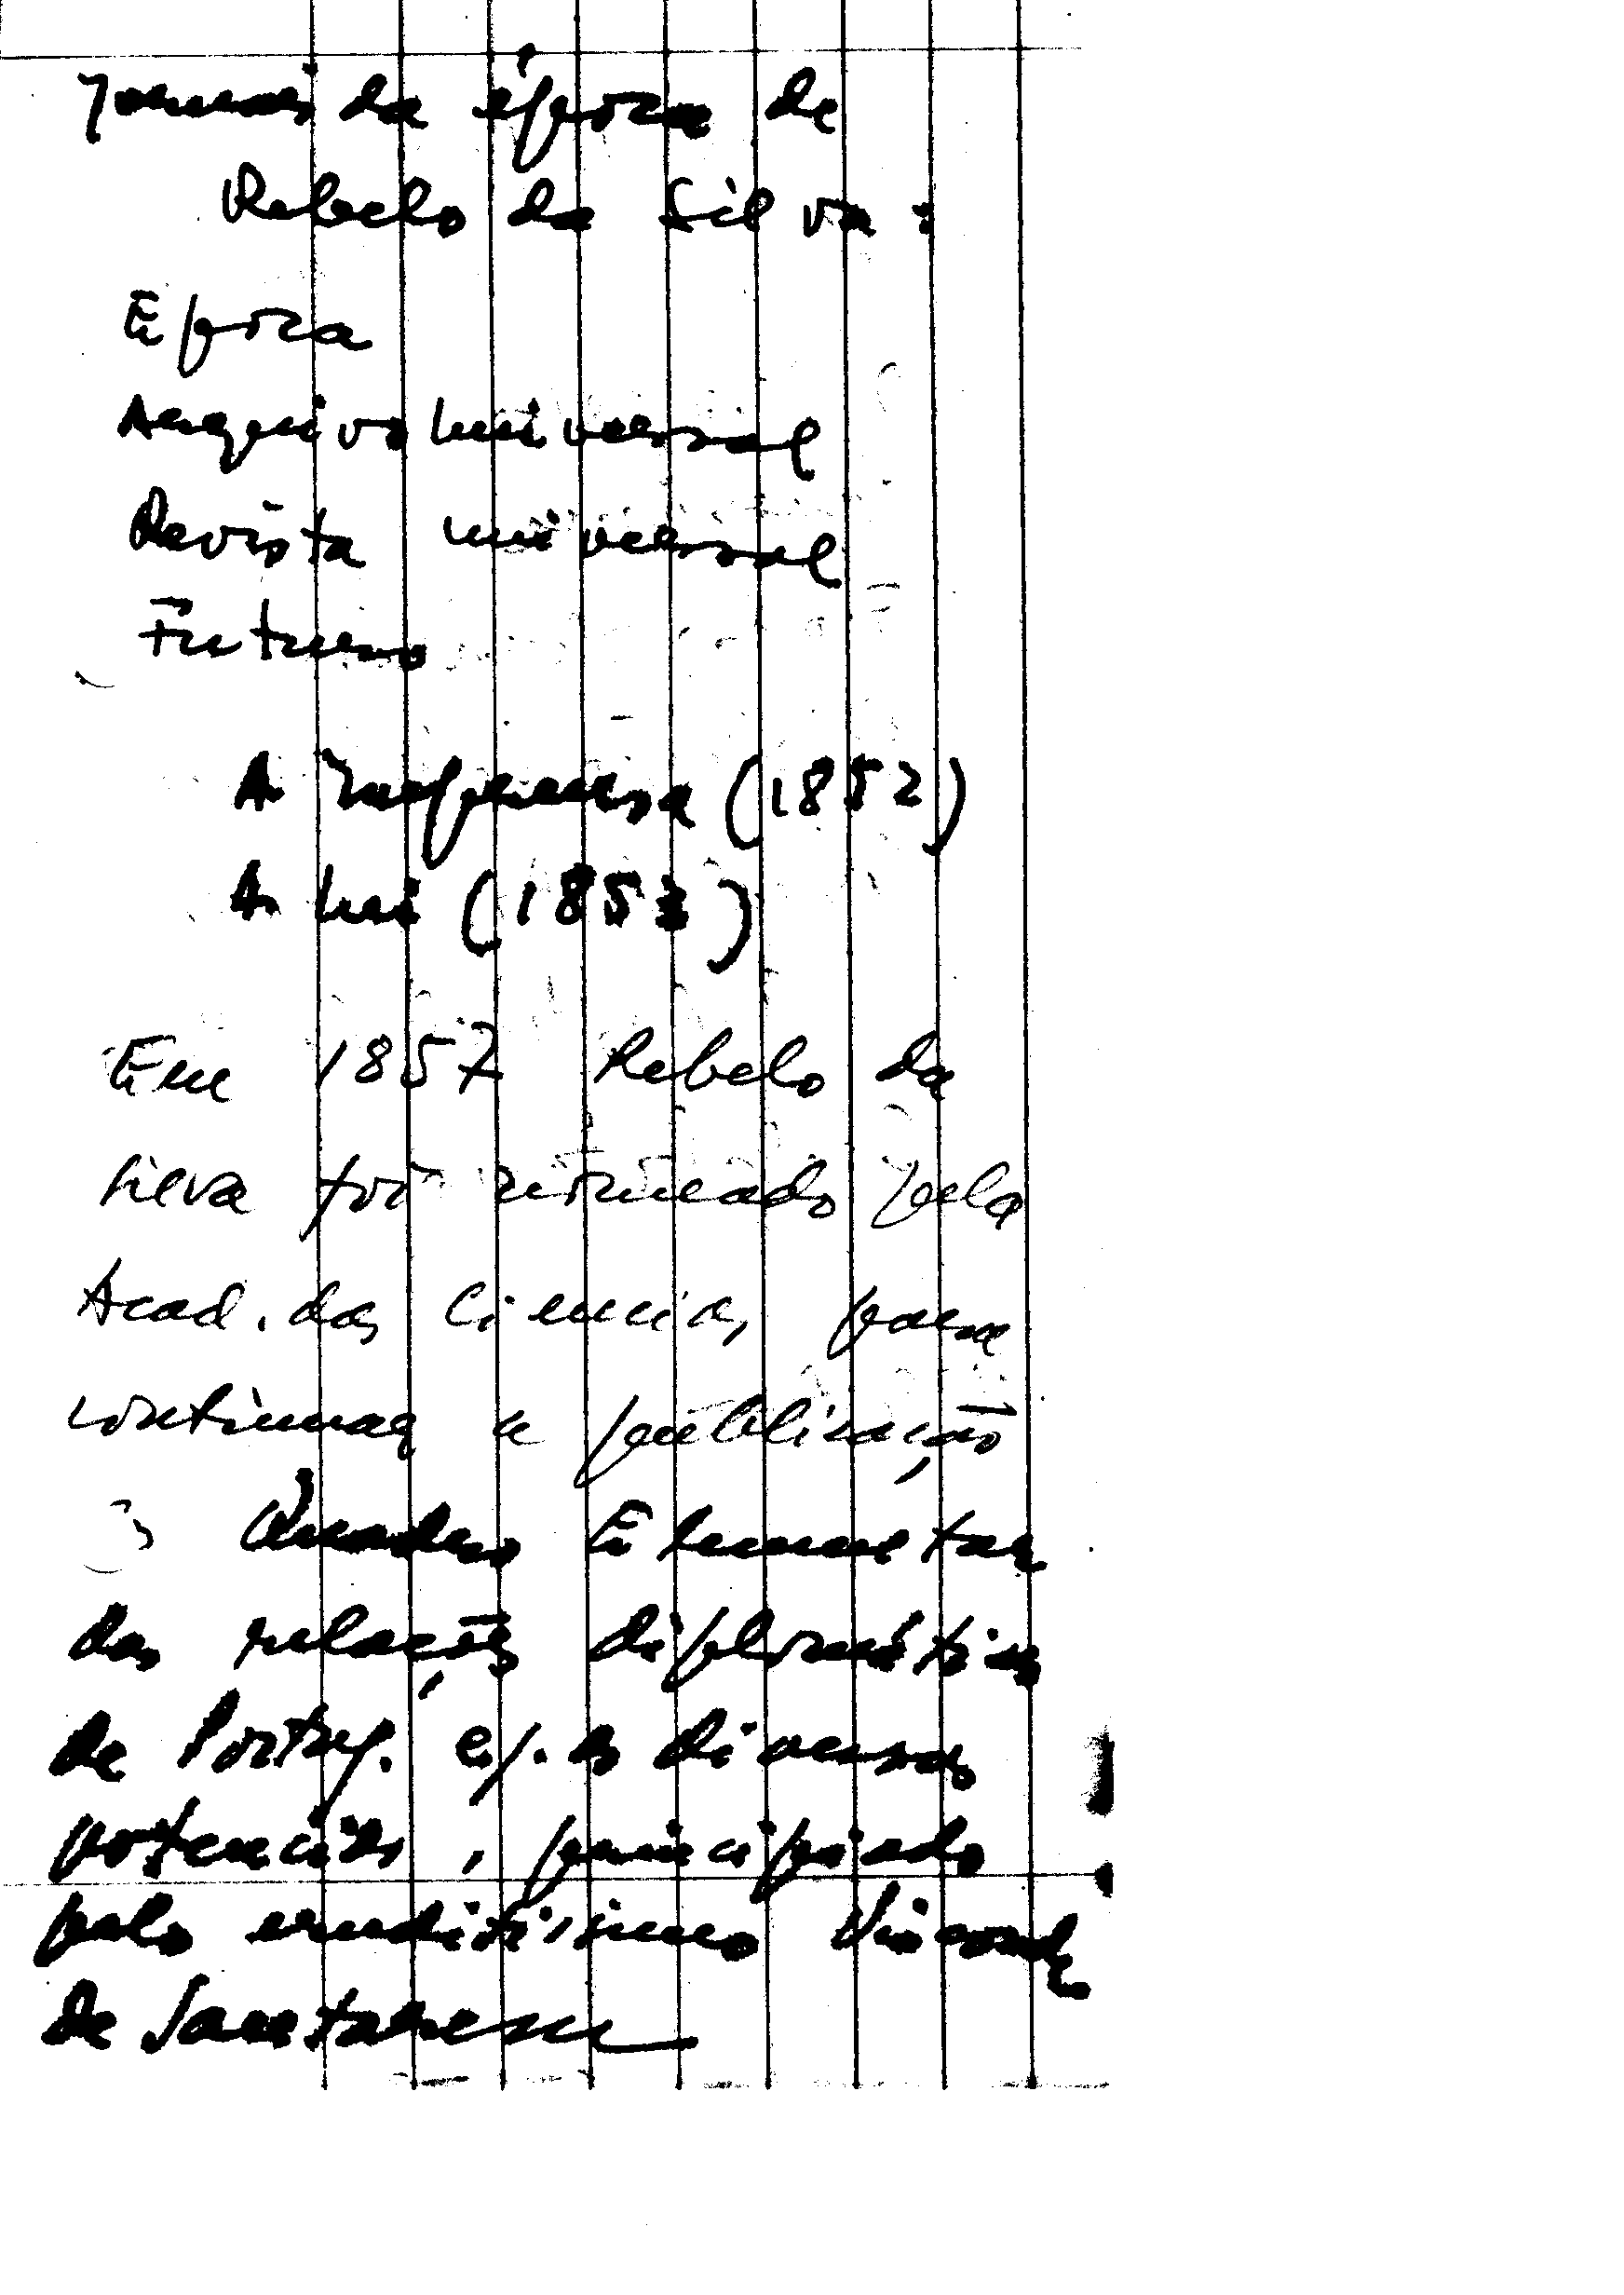 Jornais da época de
Rebelo da Silva:
Epoca
Arquivo universal
Revista universal
Futuro
A Imprensa (1852)
A Lei (1853)
Em 1857 Rebelo da
Silva foi nomeado pela
Acad. das Ciencias para
continuar a publicação
Quadro Elementar
das relações diplomáticas
de Portug. c/. as diversas
potencias, principiado
pelo eruditissimo Visconde
de Santarem